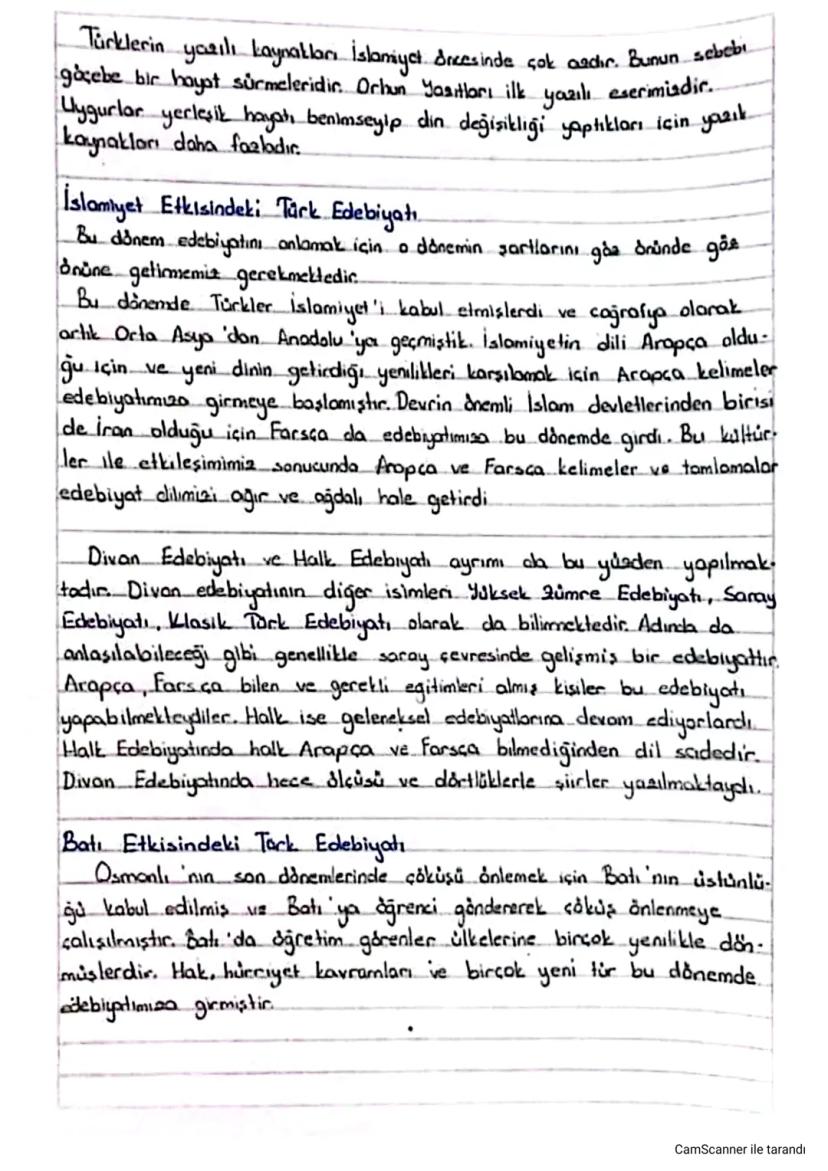 Türklerin yazılı kaynakları İslamiyet öncesinde çok azdır. Bunun sebebi
göçebe bir hayat sürmeleridir. Orhun Yazıtları ilk yazılı eserimizdir.
Uygurlar yerleşik hayatı benimseyip din değişikliği yaptıkları için yazılı
kaynakları daha fazladır.
İslamiyet Etkisindeki Türk Edebiyatı
Bu dönem edebiyatını anlamak için o dönemin şartlarını göz önünde göz
önüne getirmemiz gerekmektedir.
Bu dönemde Türkler İslamiyet'i kabul etmişlerdi ve coğrafya olarak
artık Orta Asya'dan Anadolu'ya geçmiştik. İslamiyetin dili Arapça oldu-
ğu için ve yeni dinin getirdiği yenilikleri karşılamak için Arapça kelimeler
edebiyatımıza girmeye başlamıştır. Devrin önemli İslam devletlerinden birisi
de İran olduğu için Farsça da edebiyatımıza bu dönemde girdi. Bu kültür-
ler ile etkileşimimiz sonucunda Arapça ve Farsça kelimeler ve tamlamalar
edebiyat dilimizi ağır ve ağdalı hale getirdi
Divan Edebiyatı ve Halk Edebiyatı ayrımı da bu yüzden yapılmak-
tadır. Divan edebiyatının diğer isimleri Yüksek Zümre Edebiyatı, Saray
Edebiyatı, Klasik Türk Edebiyatı olarak da bilinmektedir. Adında da
anlaşılabileceği gibi genellikle saray çevresinde gelişmiş bir edebiyattır.
Arapça, Farsça bilen ve gerekli eğitimleri almış kişiler bu edebiyatı
yapabilmekteydiler. Halk ise geleneksel edebiyatlarına devam ediyorlardı.
Halk Edebiyatında halk Arapça ve Farsça bilmediğinden dil sadedir.
Divan Edebiyatında hece ölçüsü ve dörtlüklerle şiirler yazılmaktaydı.
Batı Etkisindeki Türk Edebiyatı
Osmanlı'nın son dönemlerinde çöküşü önlemek için Batı'nın üstünlü-
ğü kabul edilmiş ve Batı'ya öğrenci göndererek çöküş önlenmeye
çalışılmıştır. Batı'da öğretim görenler ülkelerine birçok yenilikle dön-
müşlerdir. Hak, hürriyet kavramları ve birçok yeni tür bu dönemde
edebiyatımıza girmiştir.
CamScanner ile tarandı